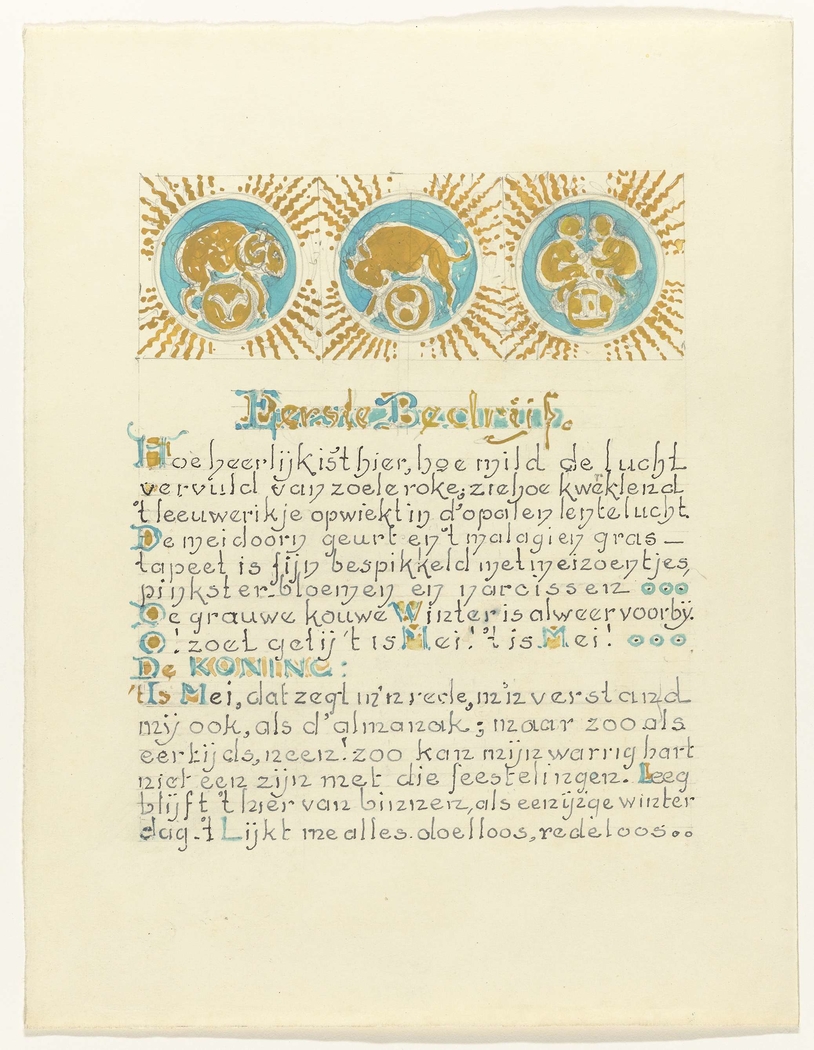 Eerste Bedrijf.
Hoe heerlijk is 't hier, hoe mild de lucht
vervuld van zoele roke; zie hoe kweklend
't leeuwerikje opwiekt in d'opalen lentelucht.
De meidoorn geurt en 't malagien gras –
tapeet is fijn bespikkeld met meizoentjes,
pinkster-bloemen en narcissen ooo
De grauwe kouwe Winter is alweer voorbij.
O! zoet getij 't is Mei! 't is Mei! ooo
De KONING:
't Is Mei, dat zegt m'n rede, m'n verstand
mij ook, als d'almanak; maar zooals
eertijds, neen! zoo kan mijn warrig hart
niet een zijn met die feestelingen. Leeg
blijft 't hier van binnen, als een ijzige winter
dag. 't Lijkt me alles doelloos, redeloos oo